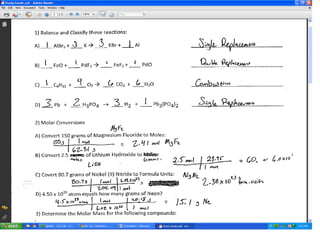 1) Balance and Classify these reactions:
A) 1 AlBr₃ + 3 K → 3 KBr + 1 Al Single Replacement
B) 1 FeO + 1 PdF₂ → 1 FeF₂ + 1 PdO Double Replacement
C) 1 C₆H₁₂ + 9 O₂ → 6 CO₂ + 6 H₂O Combustion
D) 3 Pb + 2 H₃PO₄ → 3 H₂ + 1 Pb₃(PO₄)₂ Single Replacement
2) Molar Conversions
MgF₂
A) Convert 150 grams of Magnesium Fluoride to Moles:
150g | 1 mol = 2.41 mol MgF₂
62.31 g
B) Convert 2.5 moles of Lithium Hydroxide to
LiOH
2.5 mol | 23.95 = 60. or 6.0x10¹
1 mol
C) Convert 80.7 grams of Nickel (II) Nitrate to Formula Units:
80.7g | 1 mol | 6.02x10²³
1 mol
2.38x10²³ form. units
D) 4.50 x 10²³ atoms equals how many grams of Neon?
4.5x10²³ atoms | 1 mol | 20.18 g = 15.1 g Ne
6.02x10²³ | 1 mol
3) Determine the Molar Mass for the following compounds: